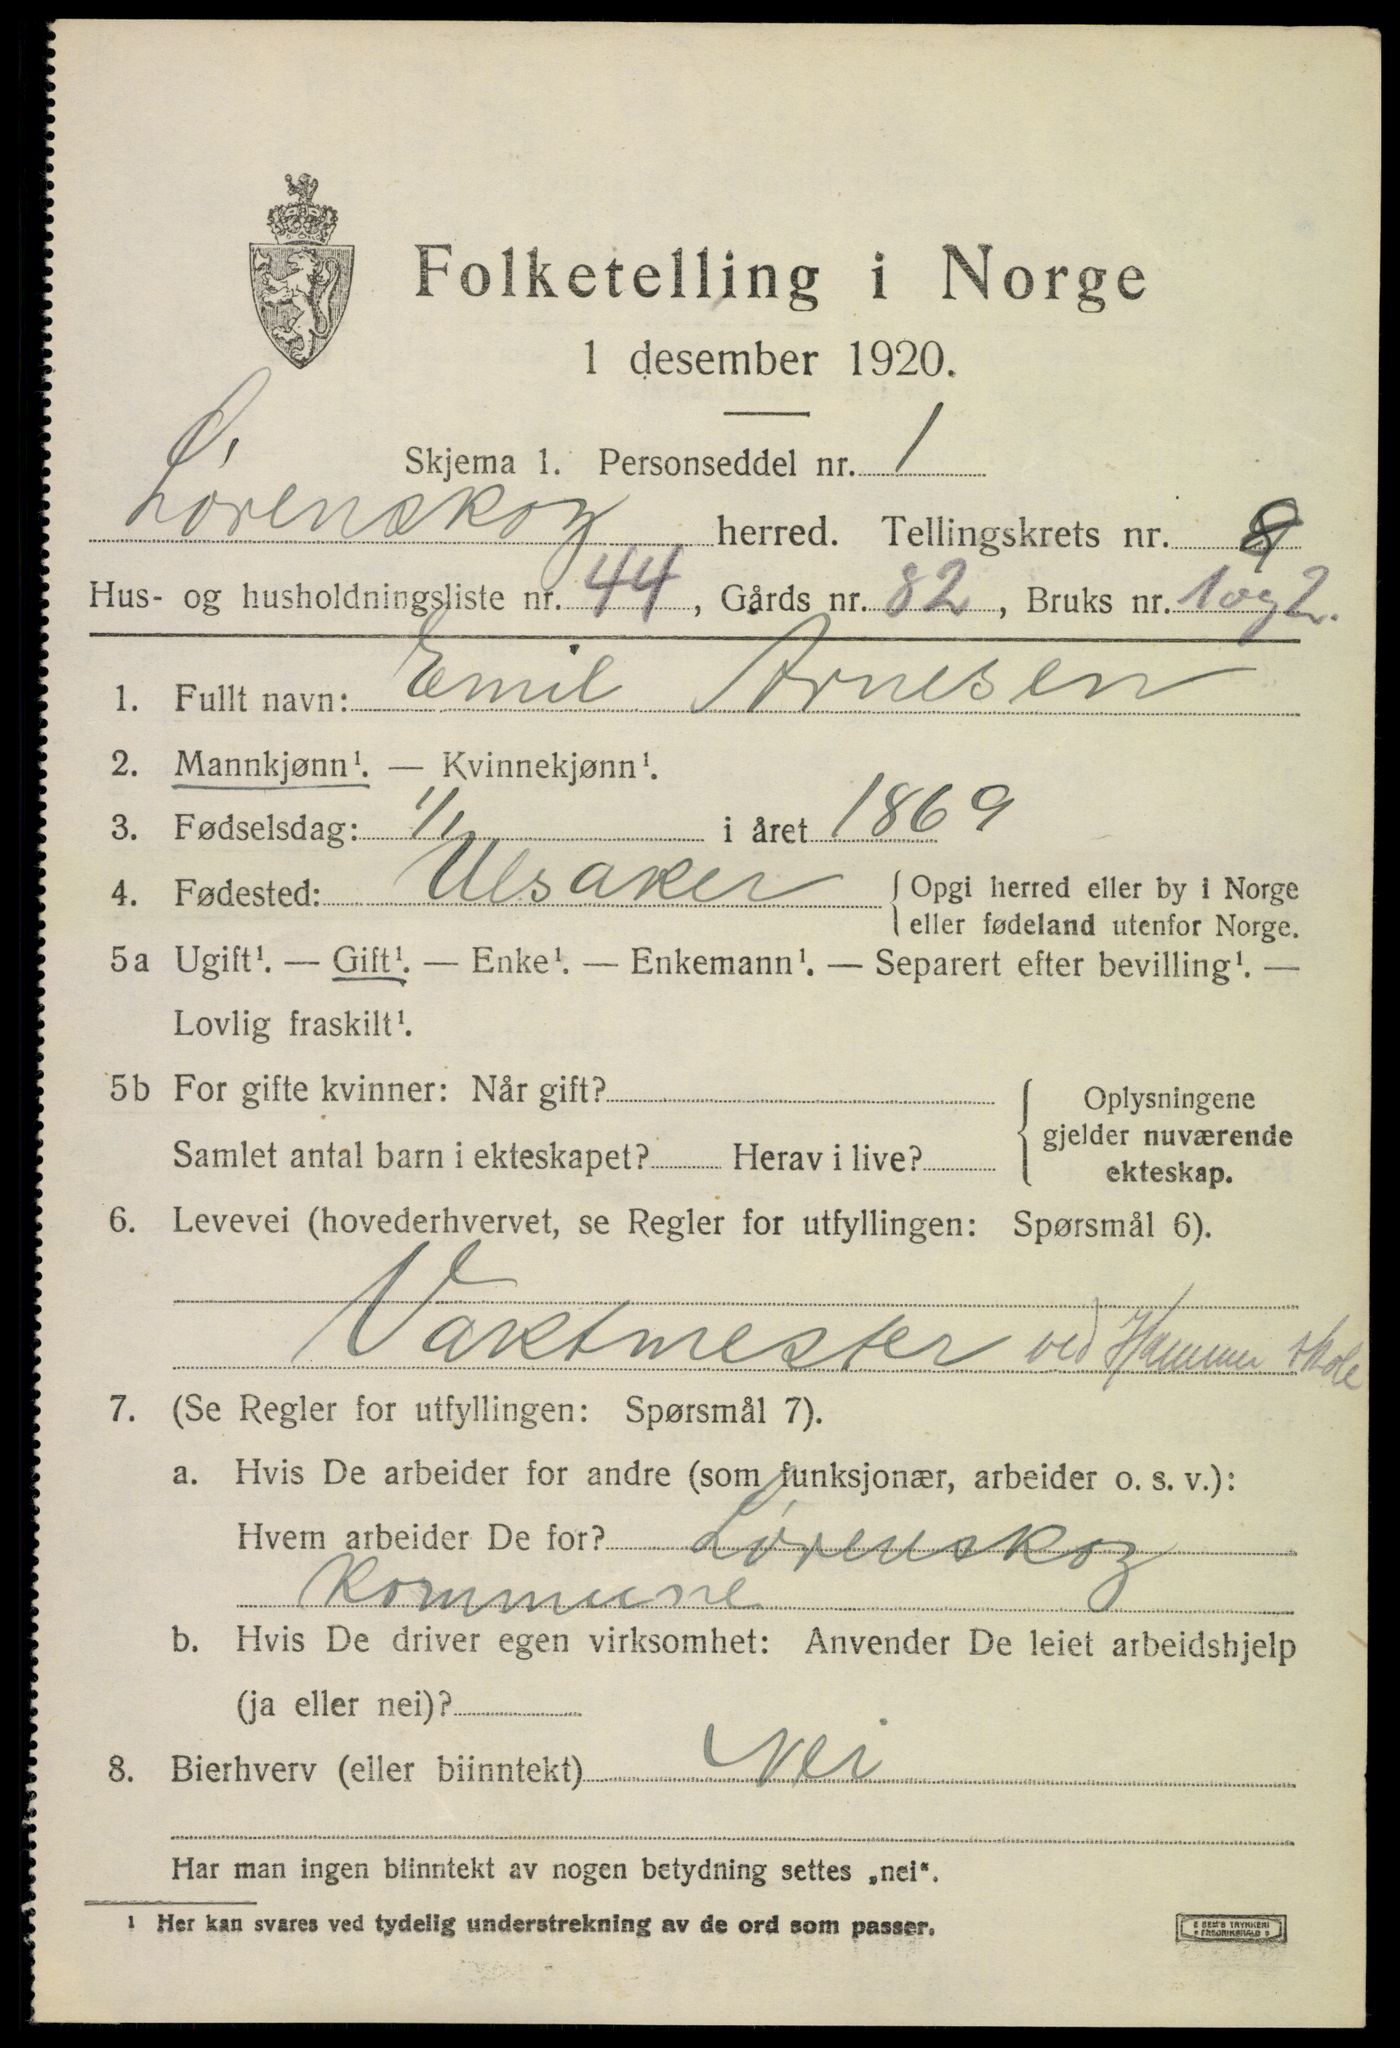 Folketelling i Norge
1 desember 1920.
Skjema 1. Personseddel nr. 1
Lørenskog herred. Tellingskrets nr.
Hus- og husholdningsliste nr. 44, Gårds nr. 82, Bruks nr. 1 og 2.
1. Fullt navn: Emil Arnesen
2. Mannkjønn¹. — Kvinnekjønn¹.
3. Fødselsdag: 1/1 i året 1869
4. Fødested: Ulsaker { Opgi herred eller by i Norge
eller fødeland utenfor Norge.
5a Ugift¹. — Gift¹. — Enke¹. — Enkemann¹. — Separert efter bevilling¹. —
Lovlig fraskilt¹.
5b For gifte kvinner: Når gift?
Samlet antal barn i ekteskapet? Herav i live?
{ Oplysningene
gjelder nuværende
ekteskap.
6. Levevei (hovederhvervet, se Regler for utfyllingen: Spørsmål 6).
Vaktmester ved Hammer skole
7. (Se Regler for utfyllingen: Spørsmål 7).
a. Hvis De arbeider for andre (som funksjonær, arbeider o. s. v.):
Hvem arbeider De for? Lørenskog
Kommune
b. Hvis De driver egen virksomhet: Anvender De leiet arbeidshjelp
(ja eller nei)?
8. Bierhverv (eller biinntekt) Nei
Har man ingen biinntekt av nogen betydning settes „nei“.
¹ Her kan svares ved tydelig understrekning av de ord som passer.
E SEM'S TRYKKERI
FREDRIKSHALD